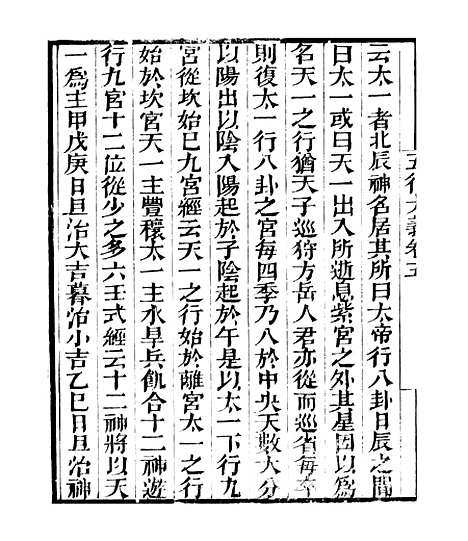 五行大義卷五
云太一者北辰神名居其所曰太帝行八卦日辰之間
曰太一或曰天一出入所遊息紫宮之外其星因以為
名天一之行猶天子巡狩方岳人君亦從而巡省每卒
則復太一行八卦之宮每四季乃入於中央天數大分
以陽出以陰入陽起於子陰起於午是以太一下行九
宮從坎始巳九宮經云天一之行始於離宮太一之行
始於坎宮天一主豐穰太一主水旱兵飢合十二神遊
行九宮十二位從少之多六壬式經云十二神將以天
一為主甲戊庚日旦治大吉暮治小吉乙巳日旦治神